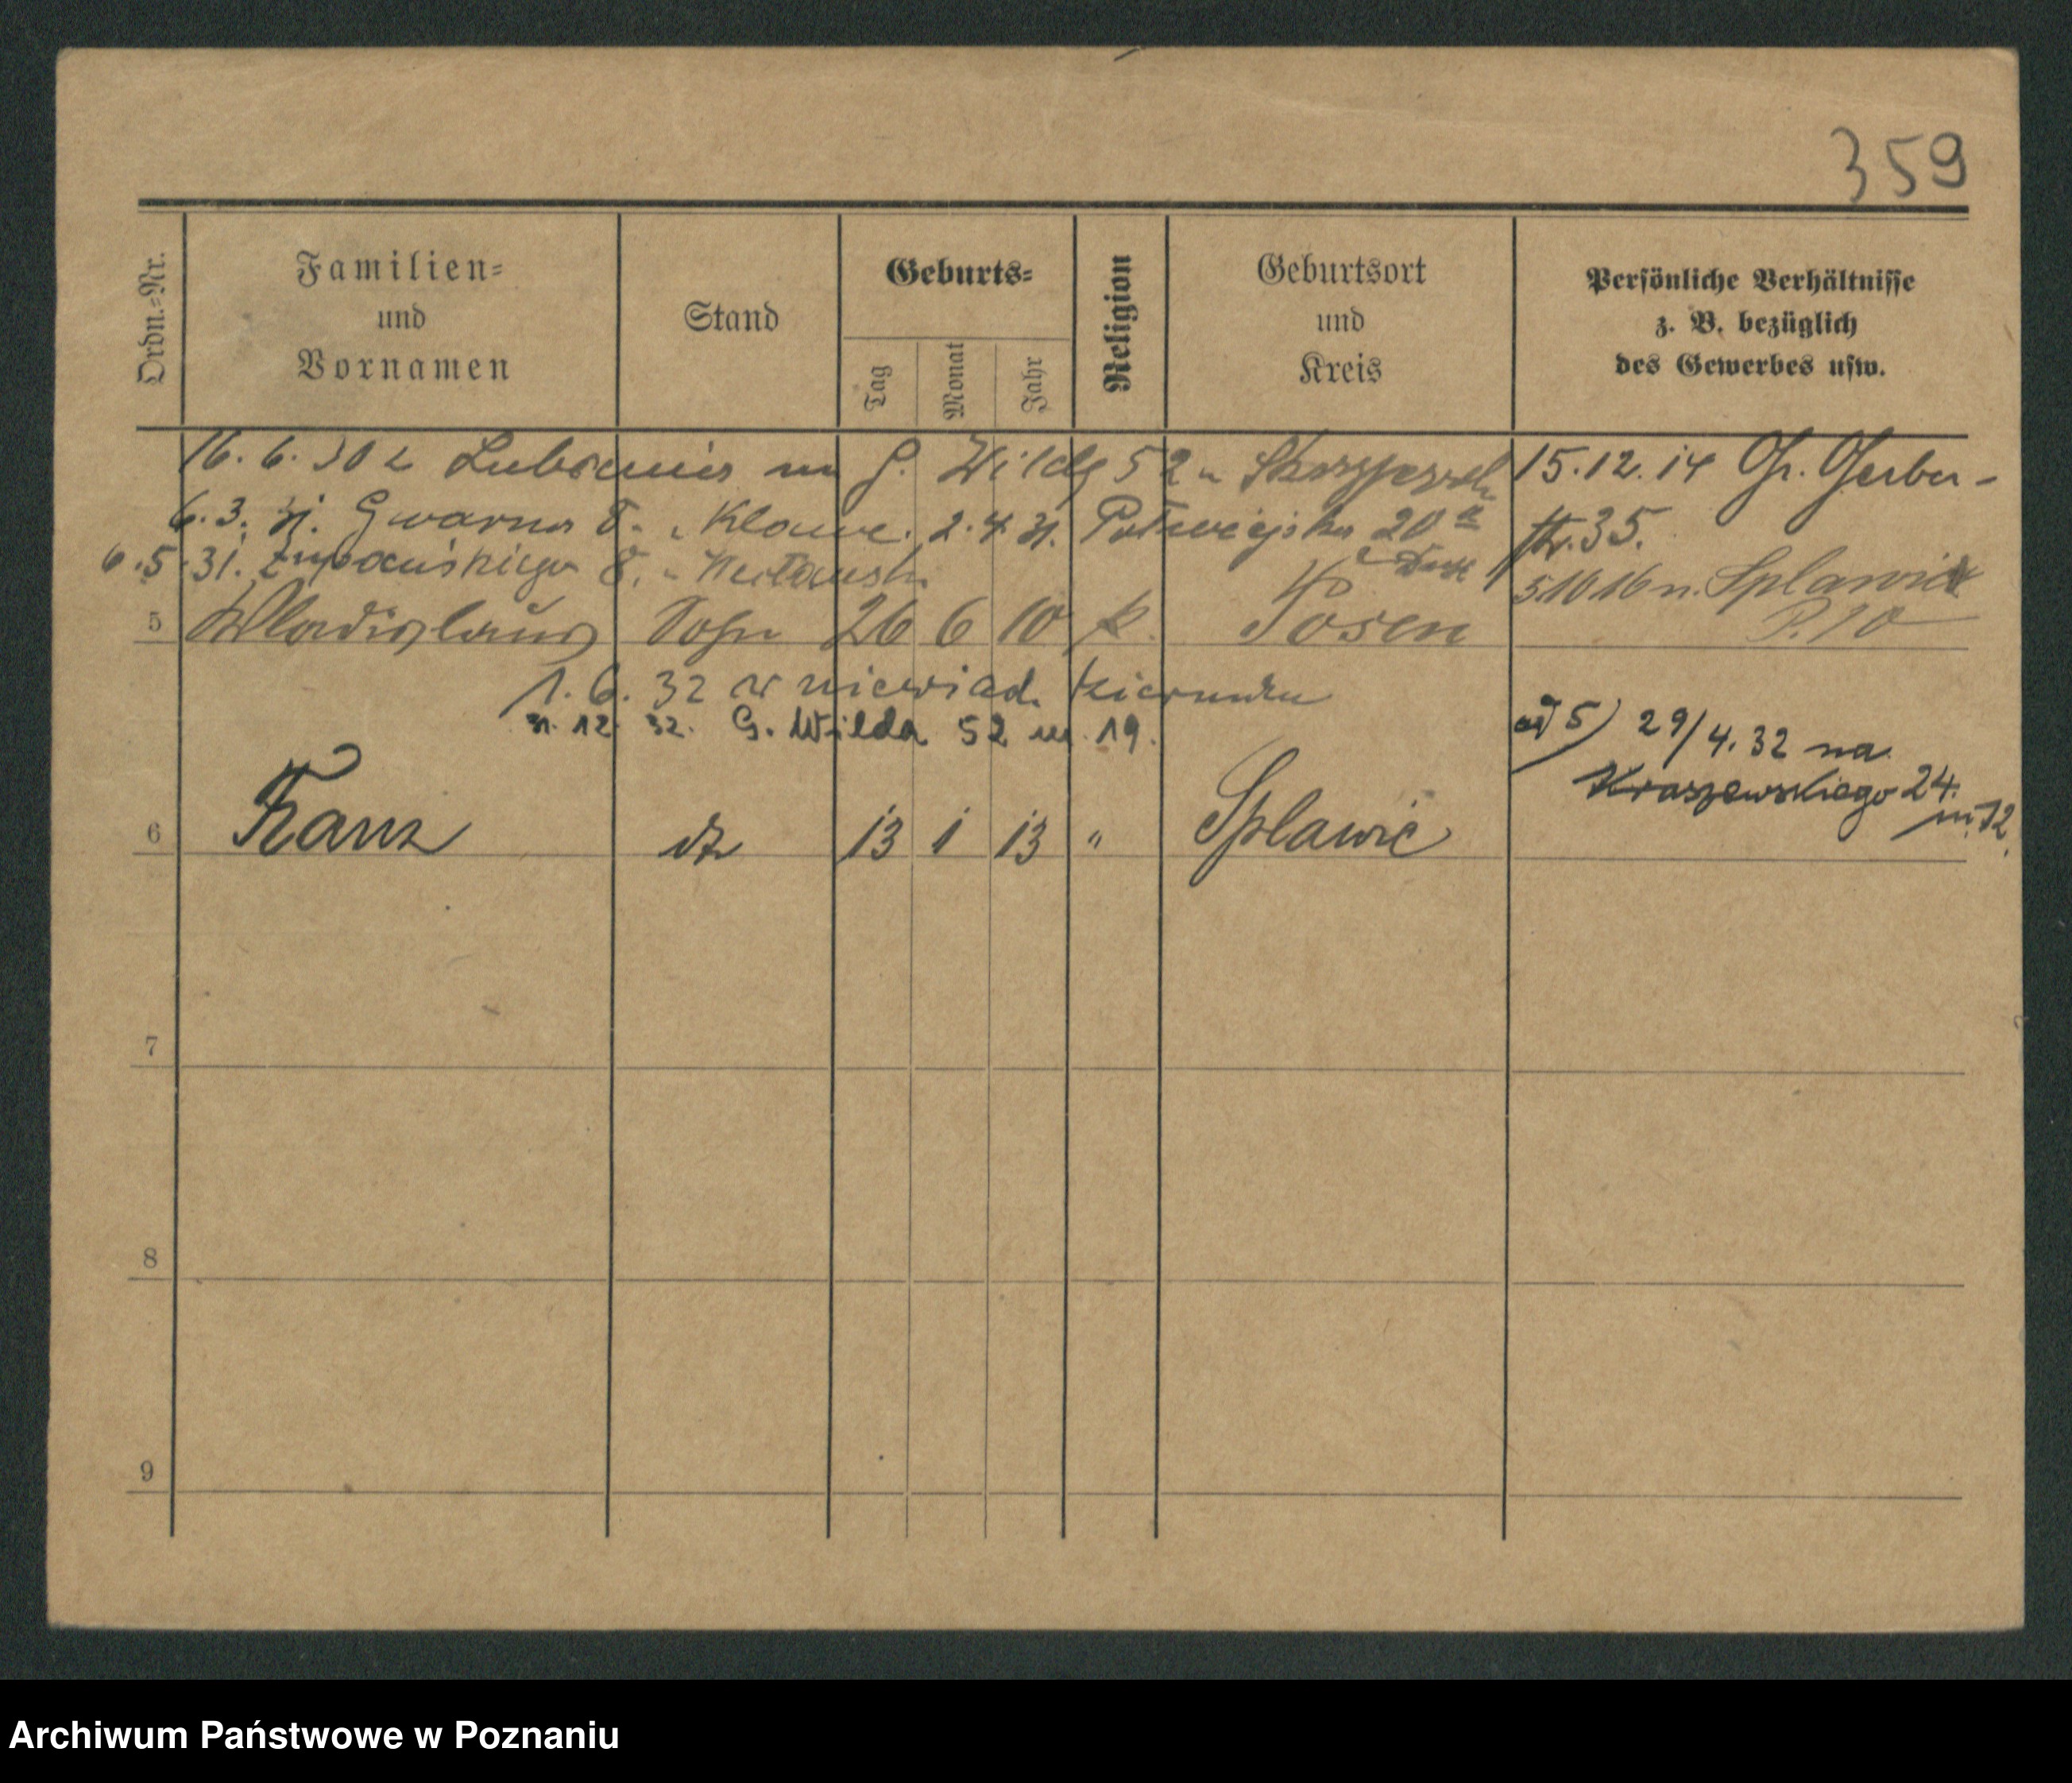 359
Ordn.-Nr.
Familien-
und
Vornamen
Stand
Geburts-
Tag
Monat
Jahr
Religion
Geburtsort
und
Kreis
Persönliche Verhältnisse
z. B. bezüglich
des Gewerbes usw.
16. 6. 30 z Lubrania na G. Wildę 52 u
15.12.14 Gr. Gerber-
str. 35.
6. 3. 31. Gwarna 8. u 2. 4. 31. Półwiejska 20
6. 5. 31. Żupańskiego 8. u
5 10 16 n. Splawie
P. 10
5 Wladislaus Sohn 26 6 10 k. Posen
1. 6. 32 w niewiad. kierunku
31. 12. 32. G. Wilda 52 m. 19.
ad 5) 29/4. 32 na
Kraszewskiego 24.
m. 12.
6 Franz dto 13 1 13 " Splawie
7
8
9
Archiwum Państwowe w Poznaniu